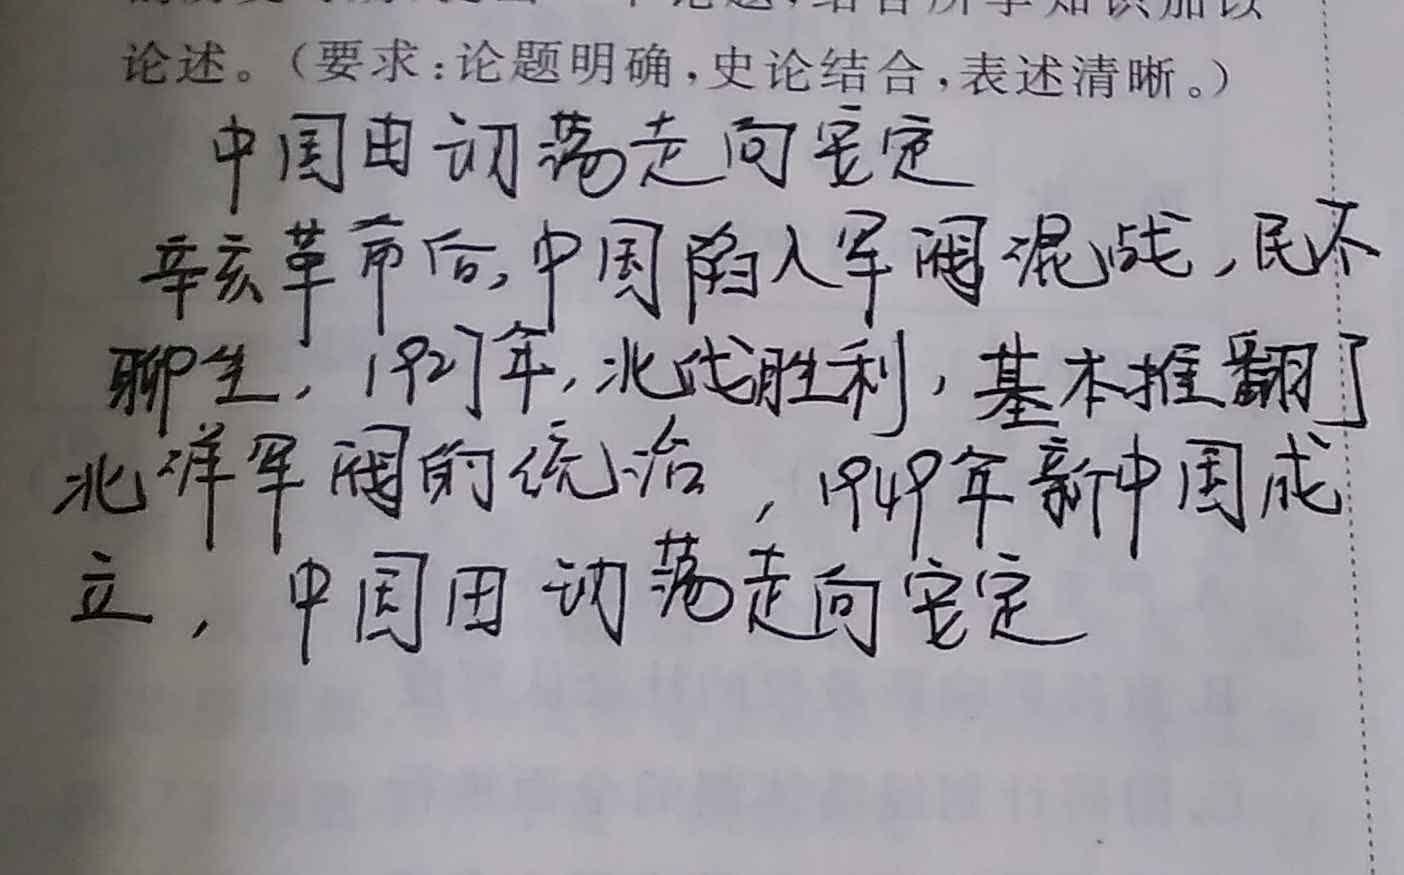 论题，结合所学知识加以
论述。（要求：论题明确，史论结合，表述清晰。）
中国由动荡走向安定
辛亥革命后，中国陷入军阀混战，民不
聊生，1927年，北伐胜利，基本推翻了
北洋军阀的统治，1949年新中国成
立，中国由动荡走向安定